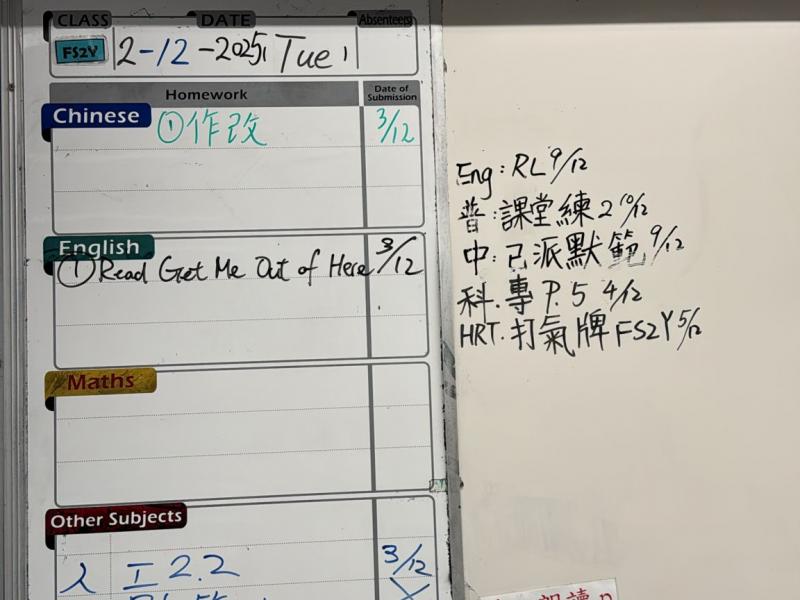 CLASS DATE Absentees
FS2Y 2-12-2025, Tue
Homework Date of Submission
Chinese ①作改 3/12
English
①Read Get Me Out of Here 3/12
Maths
Other Subjects
人 工2.2 3/12
Eng: RL 9/12
普: 課堂練2 10/12
中: 已派默範 9/12
科. 專 P.5 4/12
HRT. 打氣牌 FS2Y 5/12